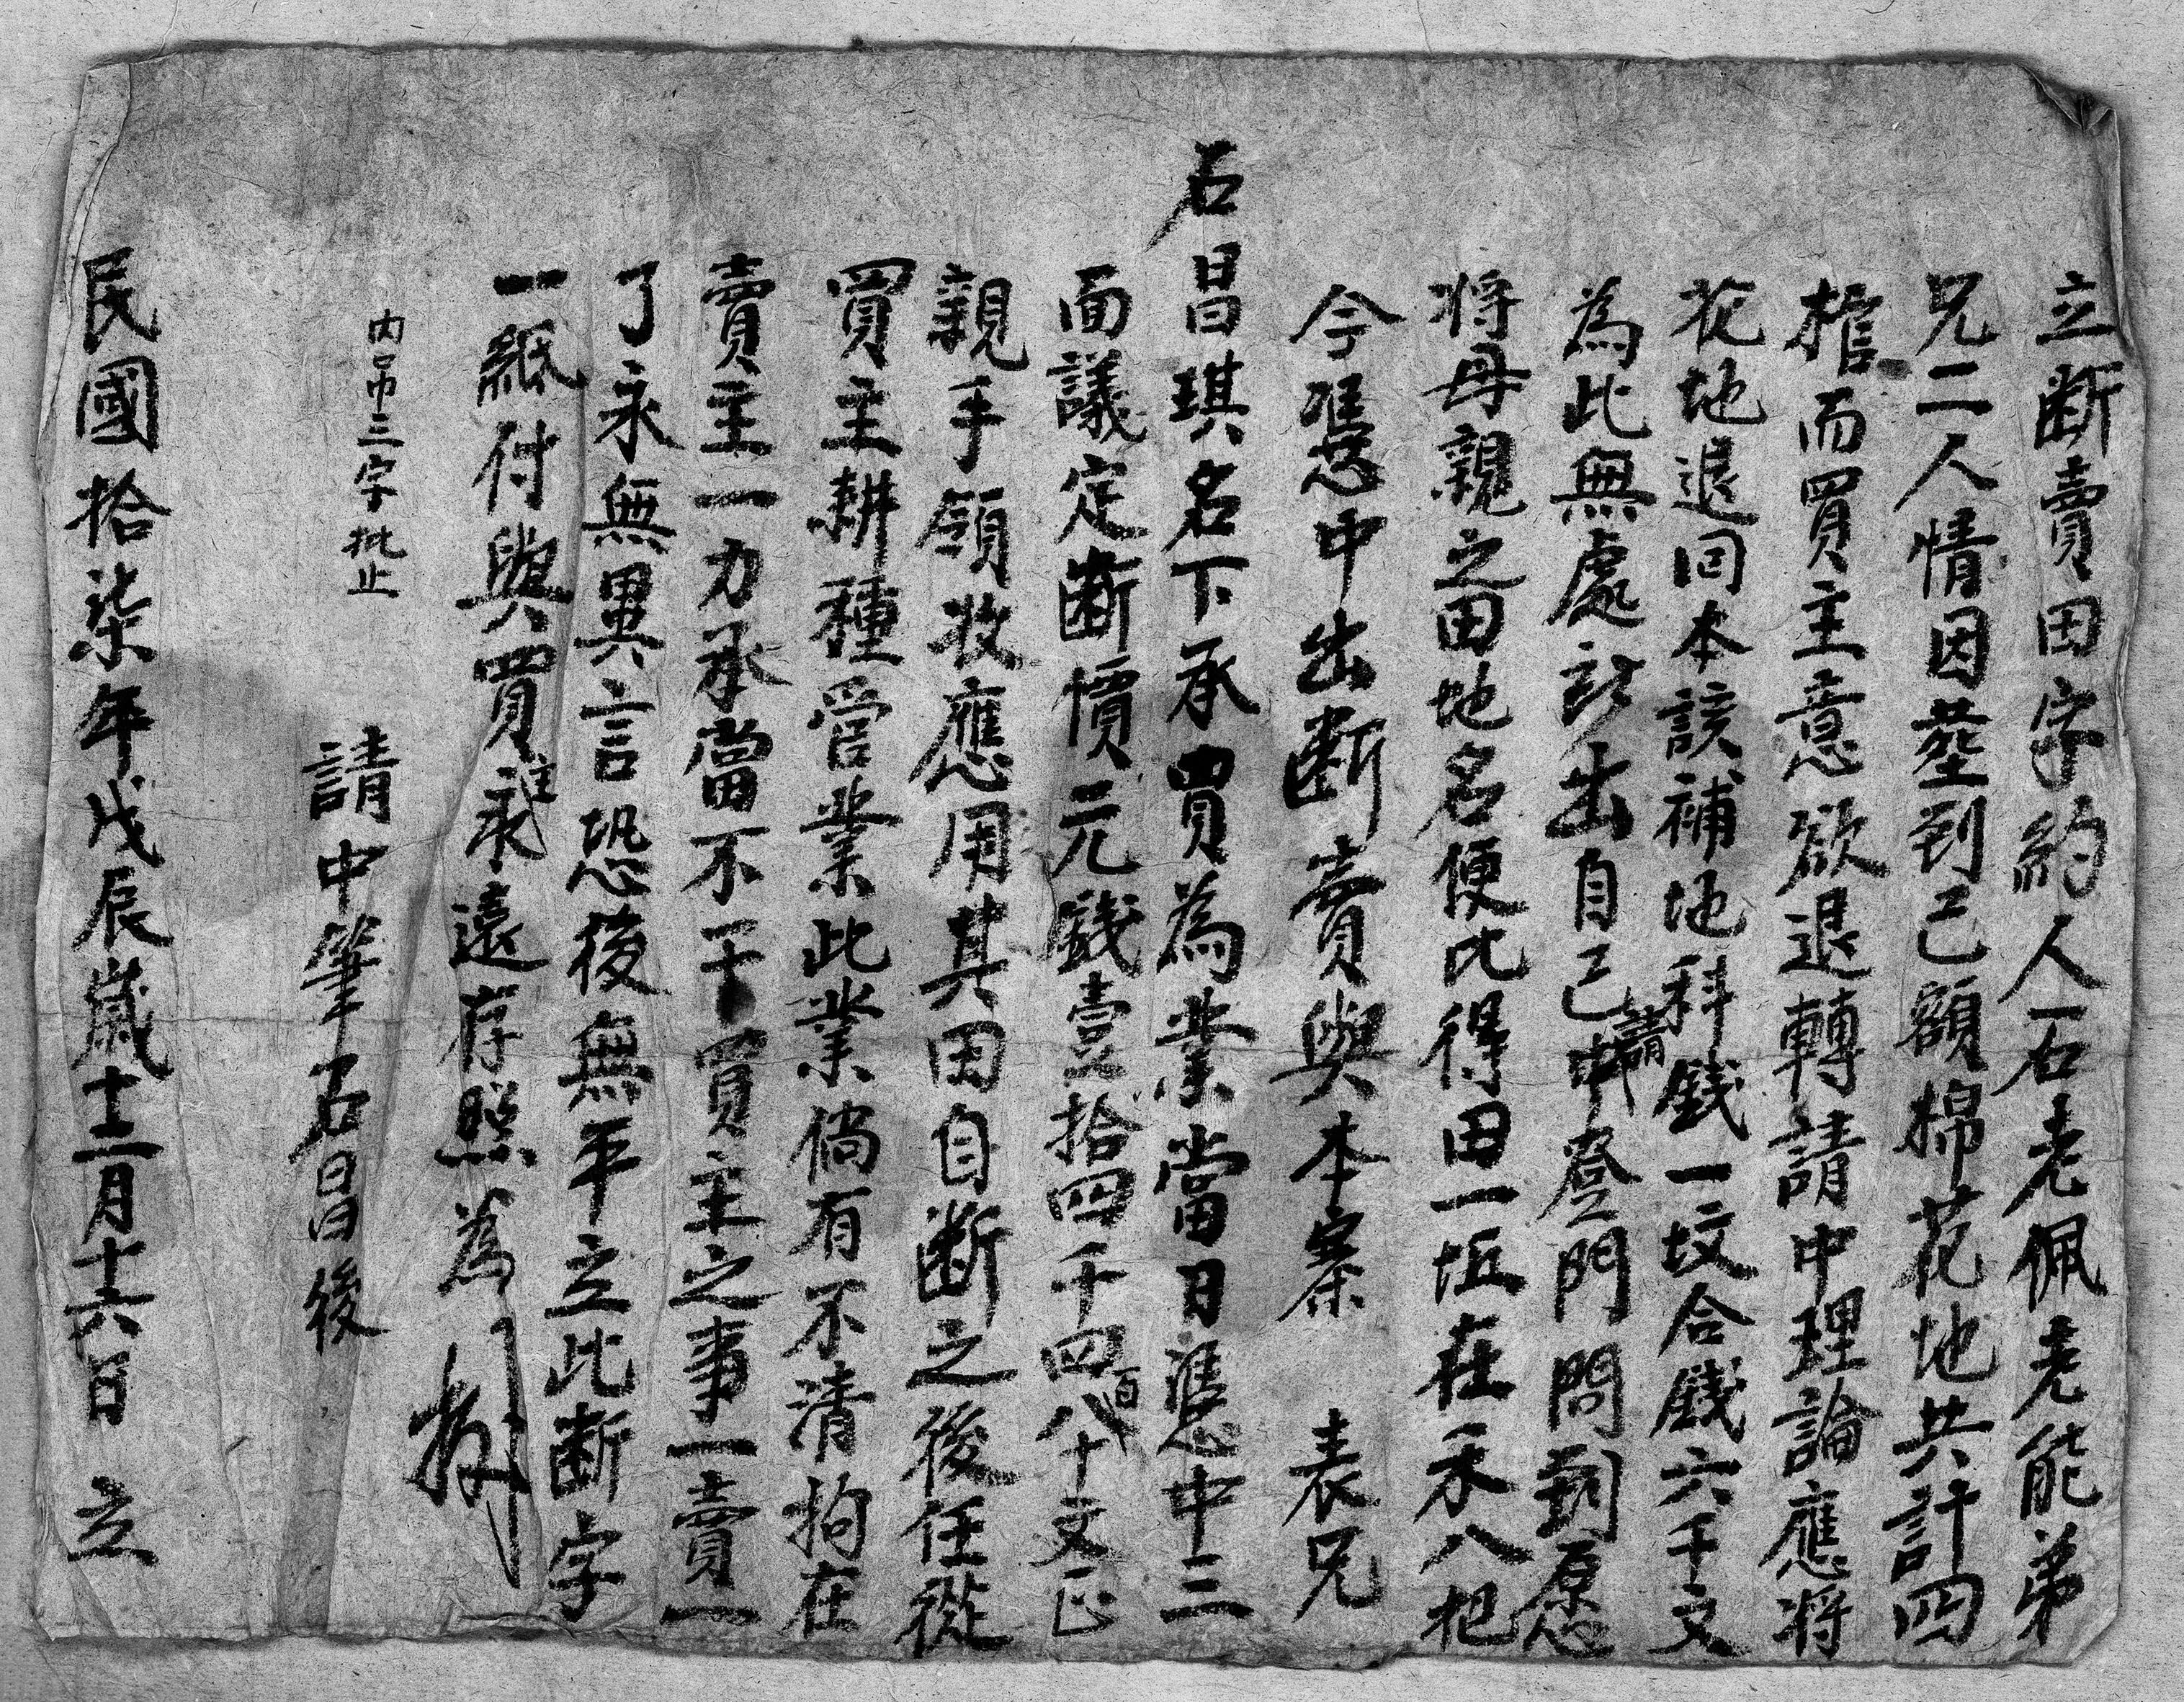 立断賣田字約人石老佩老能弟
兄二人情因塟到己額棉花地共計四
棺而買主意欲退轉請中理論應将
花地退囘本該補地科錢一坟合錢六千文
為此無處訟出自己請中登門問到愿
将母親之田地名便比得田一坵在禾八把
今憑中出断賣與本寨 表兄
石昌琪名下承買為業當日憑中三
面議定断價元錢壹拾四千四百八十文正
親手領收應用其田自断之後任從
買主耕種管業此業倘有不清拘在
賣主一力承當不干買主之事一賣一
了永無異言恐後無平立此断字
一紙付與買主永遠存照為據
内吊三字批止
請中筆石昌後
民國拾柒年戊辰歲十二月十六日 立